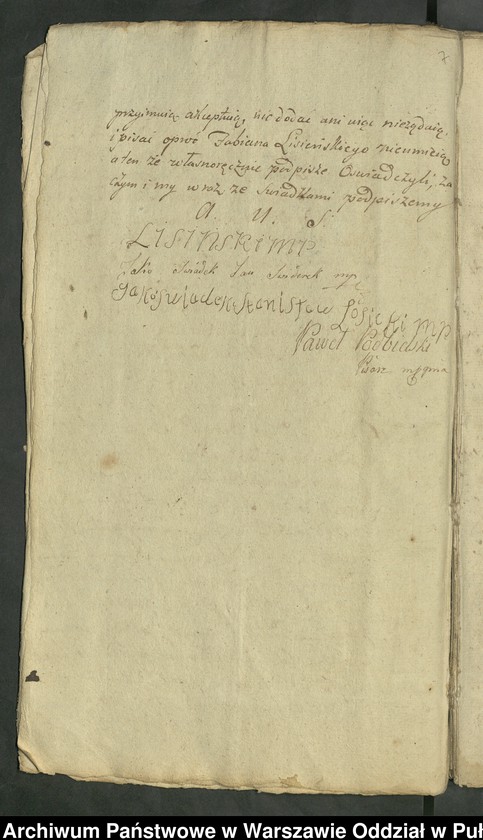 7
przyimuią akceptuią, nic dodać ani uiąć nieżądaią,
i pisać oprócz Fabiana Lisieńskiego nieumieią
a ten że własnoręcznie podpisze Oswiadczyli, za
czym i my wraz ze Swiadkami podpiszemy
A. U. S.
LISIŃSKI MP
Jako Swiadek Jan mp
Jako swiadek Stanisław Łosicki mp
Paweł
Pisarz mppria
Archiwum Państwowe w Warszawie Oddział w Puł